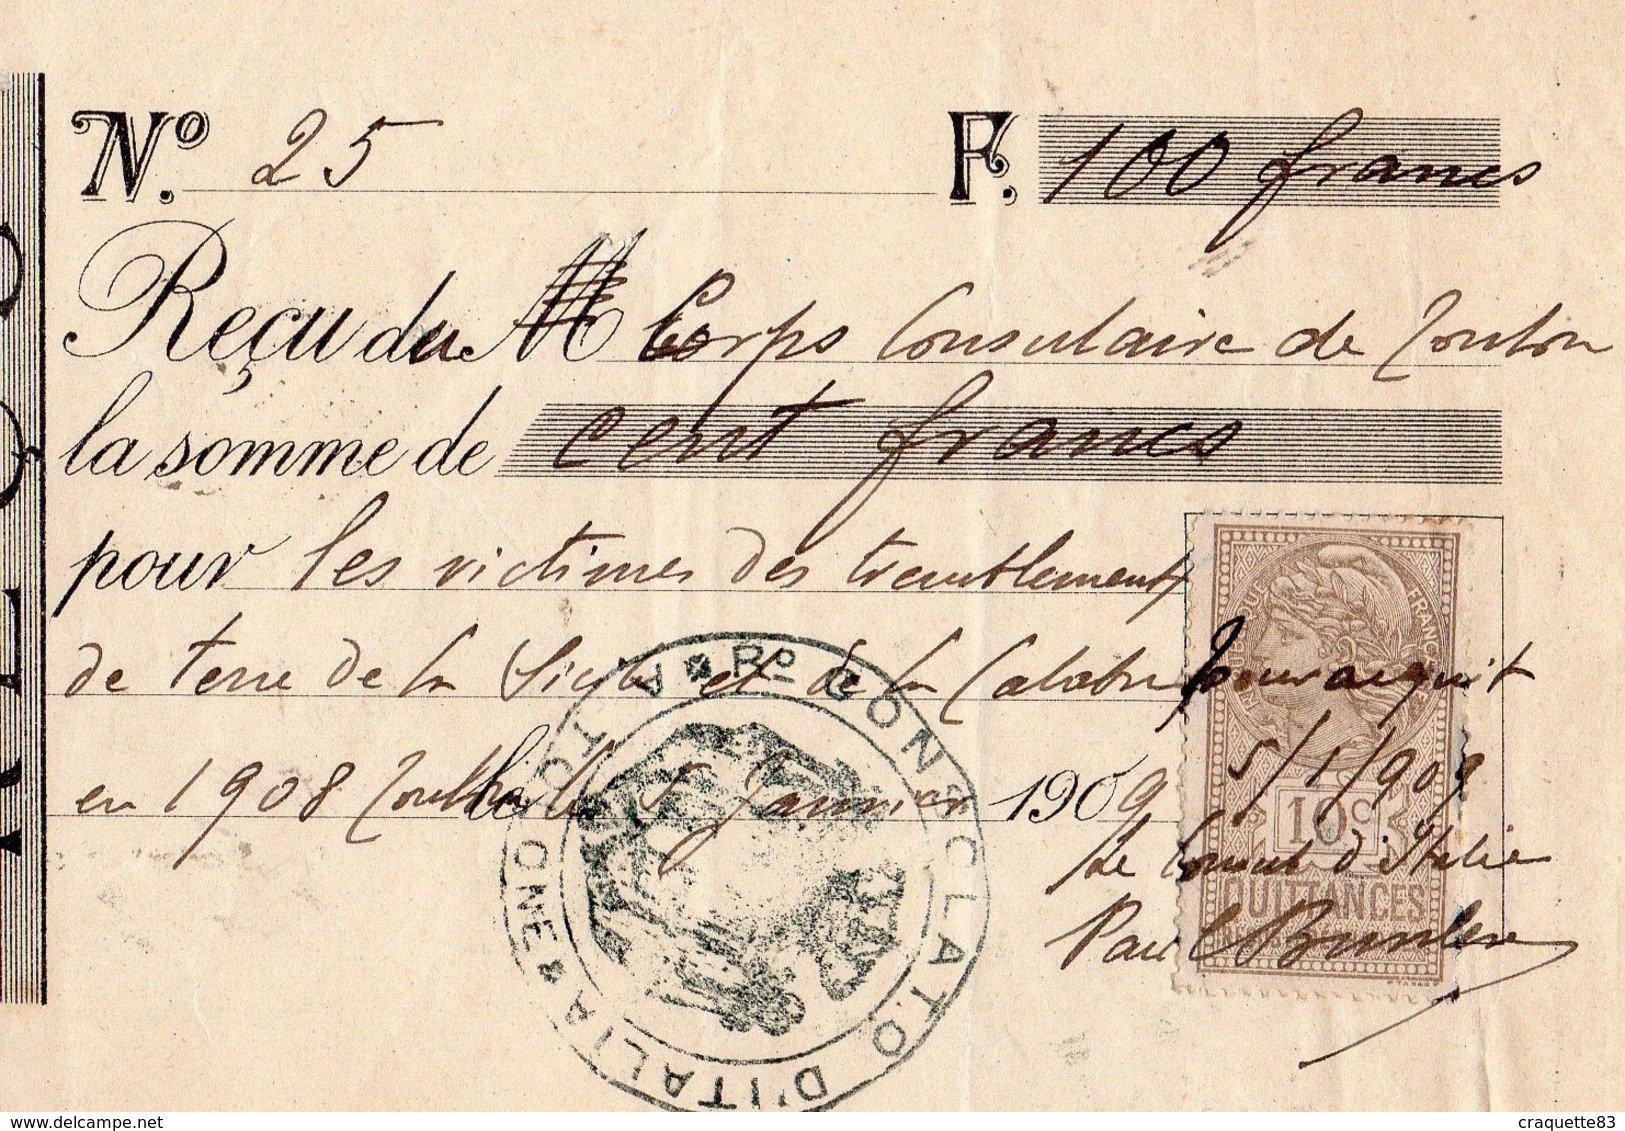 N.º 25 F. 100 francs
Reçu du M Corps Consulaire de Toulon
la somme de cent francs
pour les victimes des tremblements
de terre de la Sicile et de la Calabre
en 1908 Toulon le 5 Janvier 1909
Pour acquit
5/1/909
Le Consul d'Italie
Paul
RÉPUBLIQUE FRANÇAISE
10 C
QUITTANCES
Rº CONSOLATO D'ITALIA
A TOLONE
REÇU
www.delcampe.net
craquette83